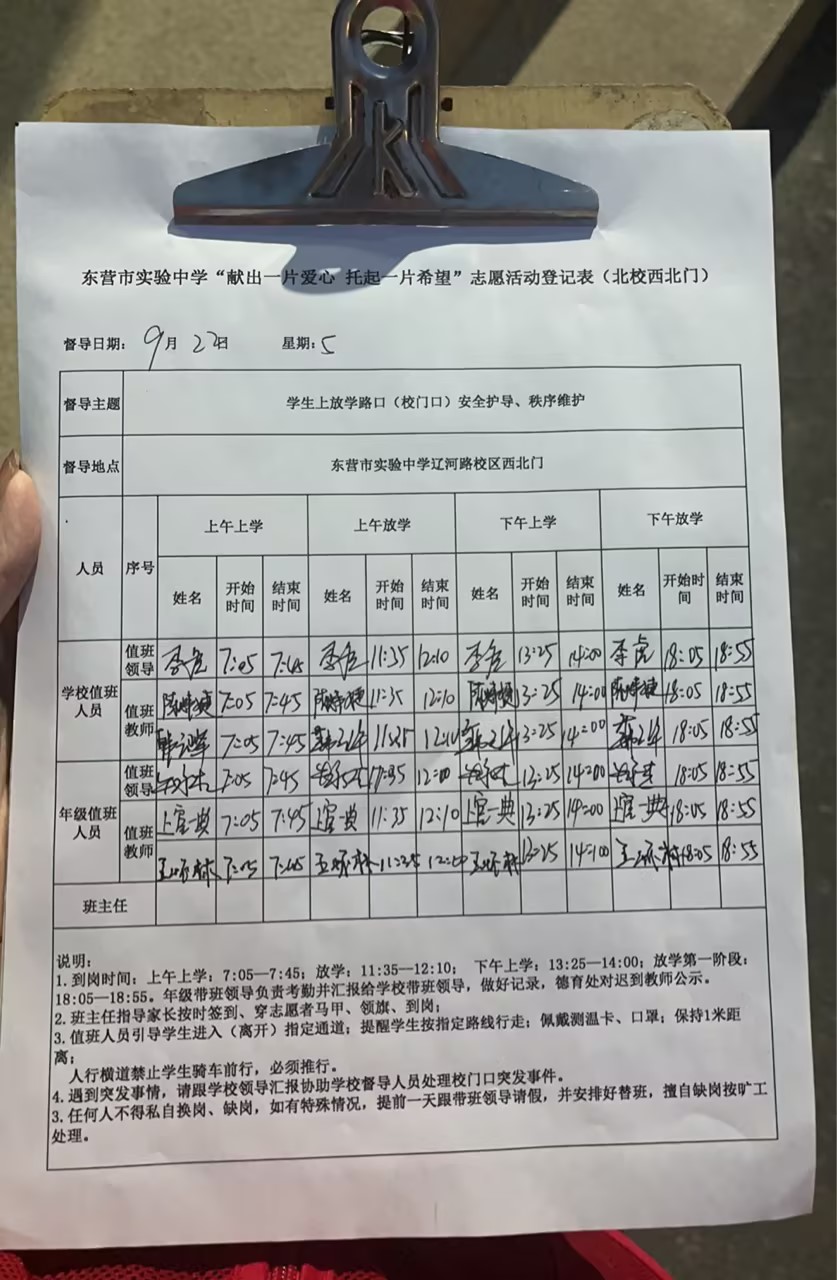 东营市实验中学“献出一片爱心 托起一片希望”志愿活动登记表（北校西北门）
督导日期： 9月 22日 星期：5
督导主题 学生上放学路口（校门口）安全护导、秩序维护
督导地点 东营市实验中学辽河路校区西北门
人员 序号 上午上学 上午放学 下午上学 下午放学
姓名 开始时间 结束时间 姓名 开始时间 结束时间 姓名 开始时间 结束时间 姓名 开始时间 结束时间
学校值班人员 值班领导 李虎 7:05 7:45 李虎 11:35 12:10 李虎 13:25 14:00 李虎 18:05 18:55
值班教师 7:05 7:45 11:35 12:10 13:25 14:00 18:05 18:55
7:05 7:45 11:35 12:10 13:25 14:00 18:05 18:55
年级值班人员 值班领导 7:05 7:45 13:25 14:00 18:05 18:55
值班教师 上官一典 7:05 7:45 上官一典 11:35 12:10 上官一典 13:25 14:00 上官一典 18:05 18:55
7:05 7:45 11:35 13:25 18:05 18:55
班主任
说明：
1. 到岗时间：上午上学：7:05—7:45；放学：11:35—12:10； 下午上学：13:25—14:00；放学第一阶段：
18:05—18:55。年级带班领导负责考勤并汇报给学校带班领导，做好记录，德育处对迟到教师公示。
2. 班主任指导家长按时签到、穿志愿者马甲、领旗、到岗；
3. 值班人员引导学生进入（离开）指定通道；提醒学生按指定路线行走；佩戴测温卡、口罩；保持1米距
离；
人行横道禁止学生骑车前行，必须推行。
4. 遇到突发事情，请跟学校领导汇报协助学校督导人员处理校门口突发事件。
3. 任何人不得私自换岗、缺岗，如有特殊情况，提前一天跟带班领导请假，并安排好替班，擅自缺岗按旷工
处理。